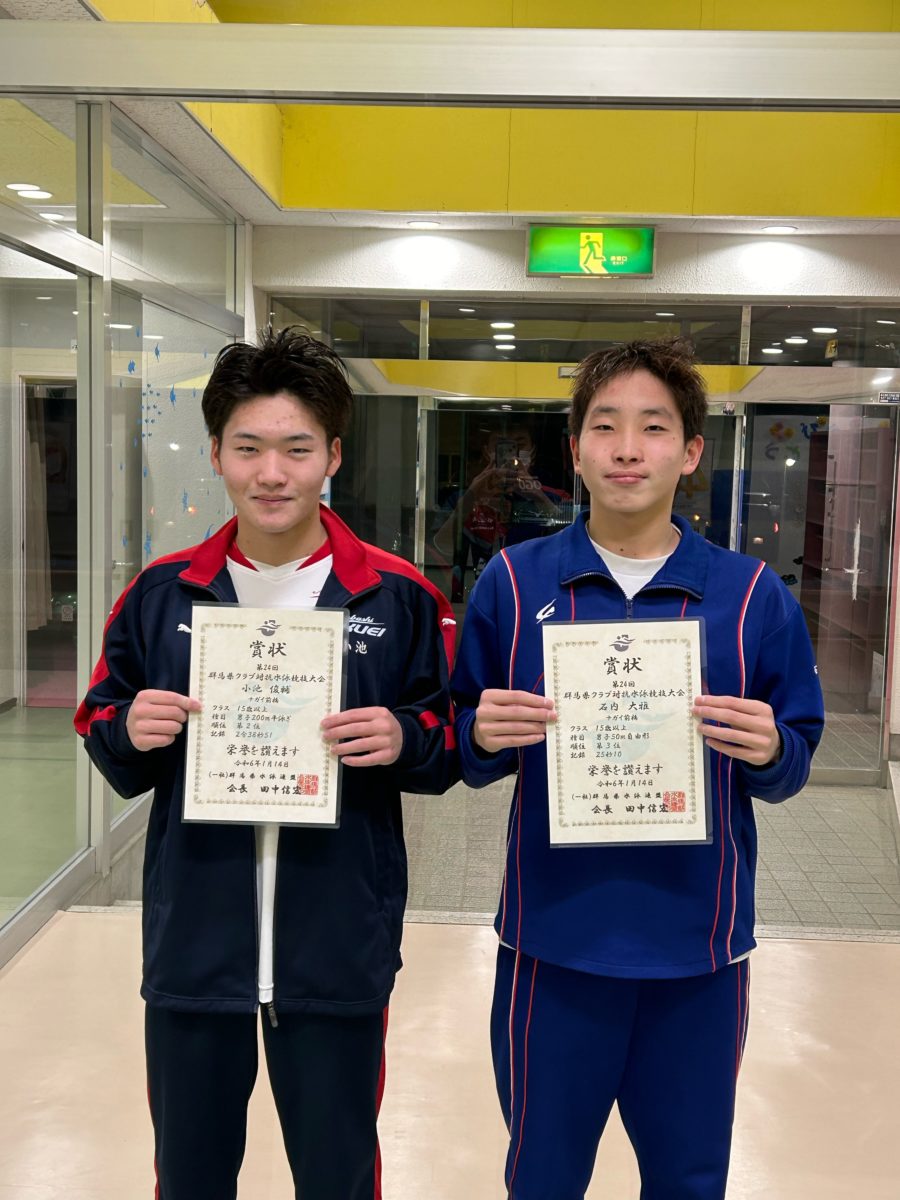 非常口
KUEI
小池
賞状
第24回
群馬県クラブ対抗水泳競技大会
小池 俊輔
ナガイ前橋
クラス 15歳以上
種目 男子200m平泳ぎ
順位 第2位
記録 2分38秒51
栄誉を讃えます
令和6年1月14日
(一社)群馬県水泳連盟
会長 田中信宏
賞状
第24回
群馬県クラブ対抗水泳競技大会
石内 大雅
ナガイ前橋
クラス 15歳以上
種目 男子50m自由形
順位 第3位
記録 25秒10
栄誉を讃えます
令和6年1月14日
(一社)群馬県水泳連盟
会長 田中信宏